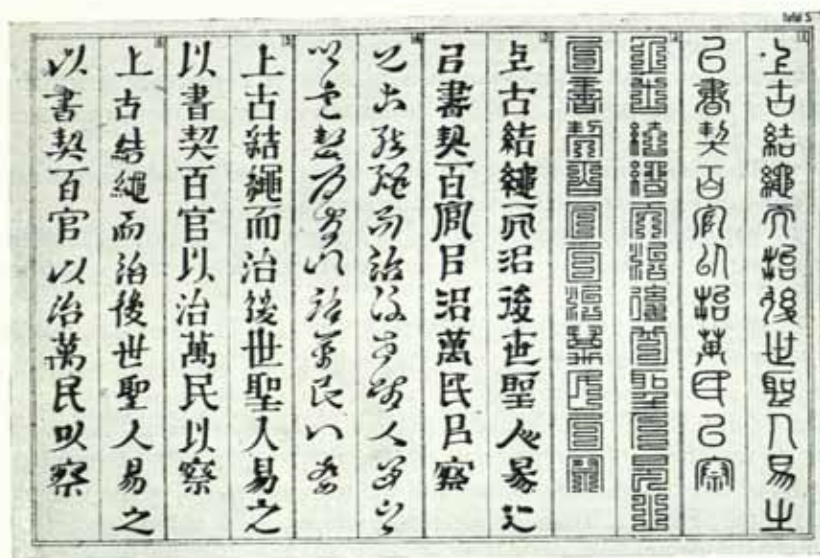 Tafel 5
1
上古結繩而治後世聖人易之
以書契百官以治萬民以察
2
上古結繩而治後世聖人易之
以書契百官以治萬民以察
3
上古結繩而治後世聖人易之
以書契百官以治萬民以察
4
上古結繩而治後世聖人易之
以書契百官以治萬民以察
5
上古結繩而治後世聖人易之
以書契百官以治萬民以察
6
上古結繩而治後世聖人易之
以書契百官以治萬民以察